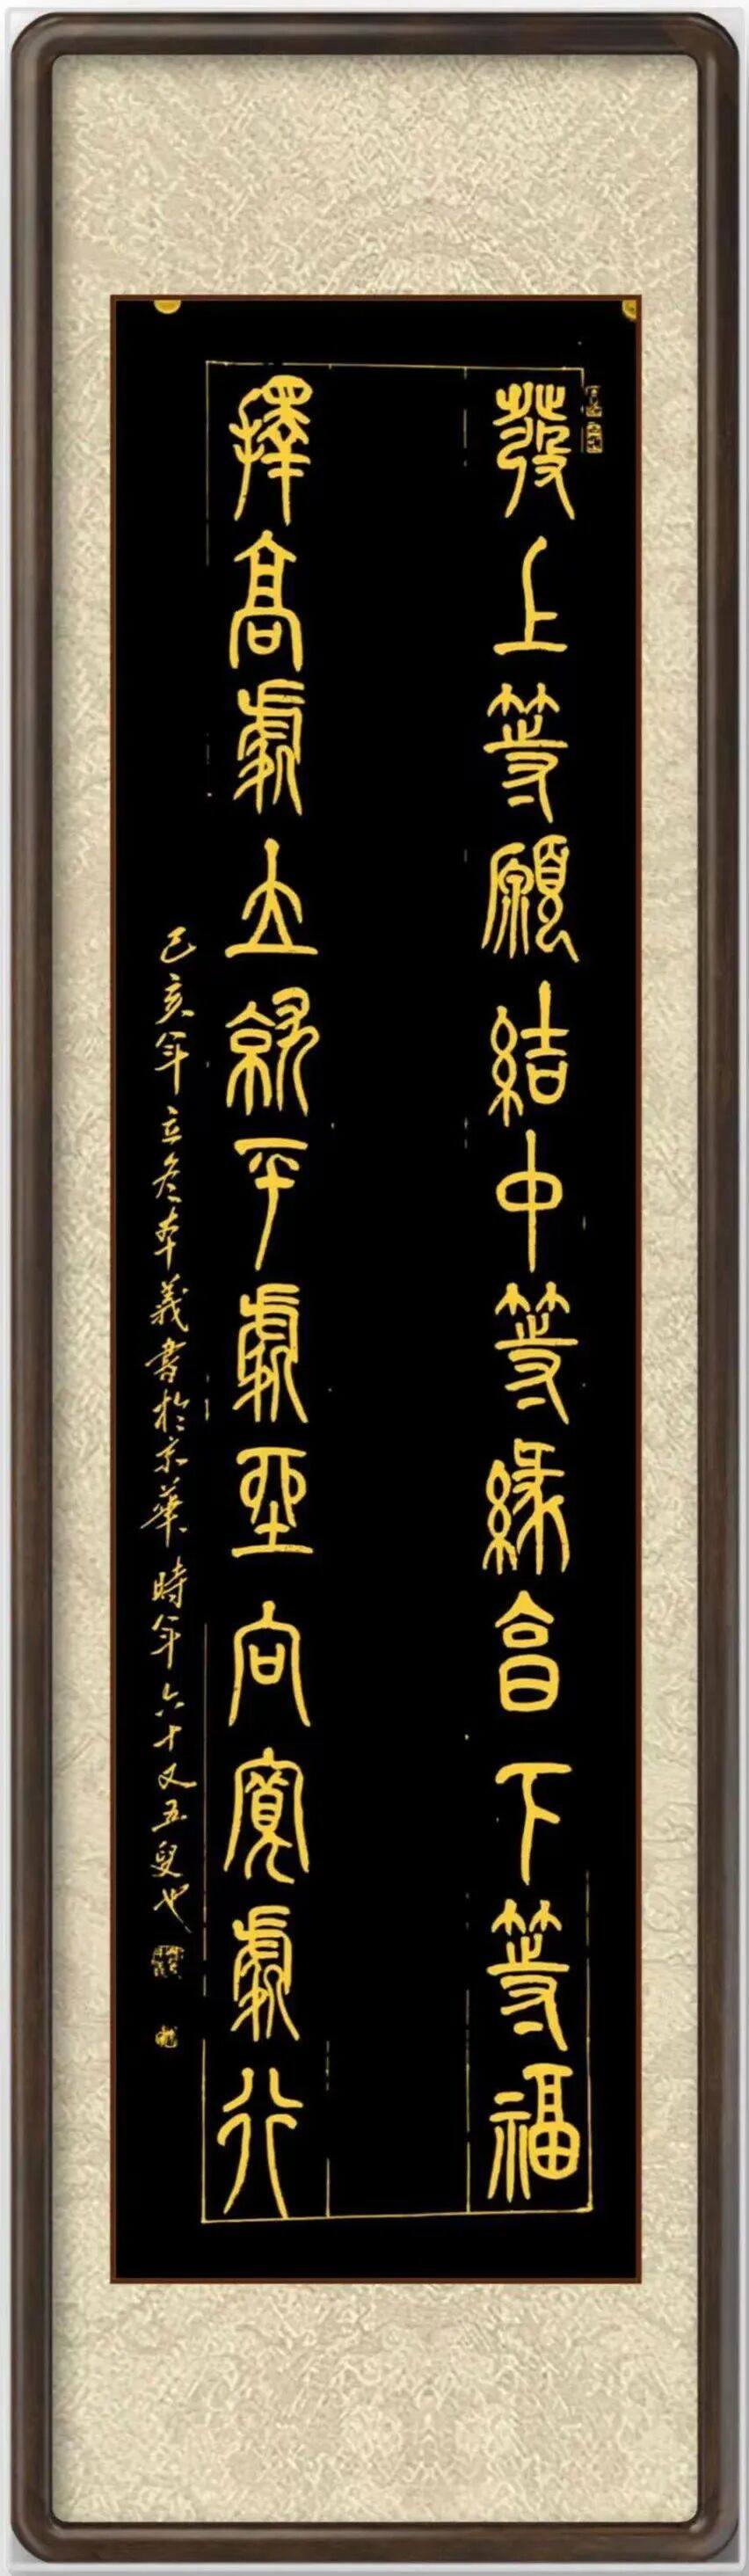 發上等願結中等緣言下等福
擇高處立就平處坐向寬處行
己亥年立冬本義書於京華時年六十又五叟也